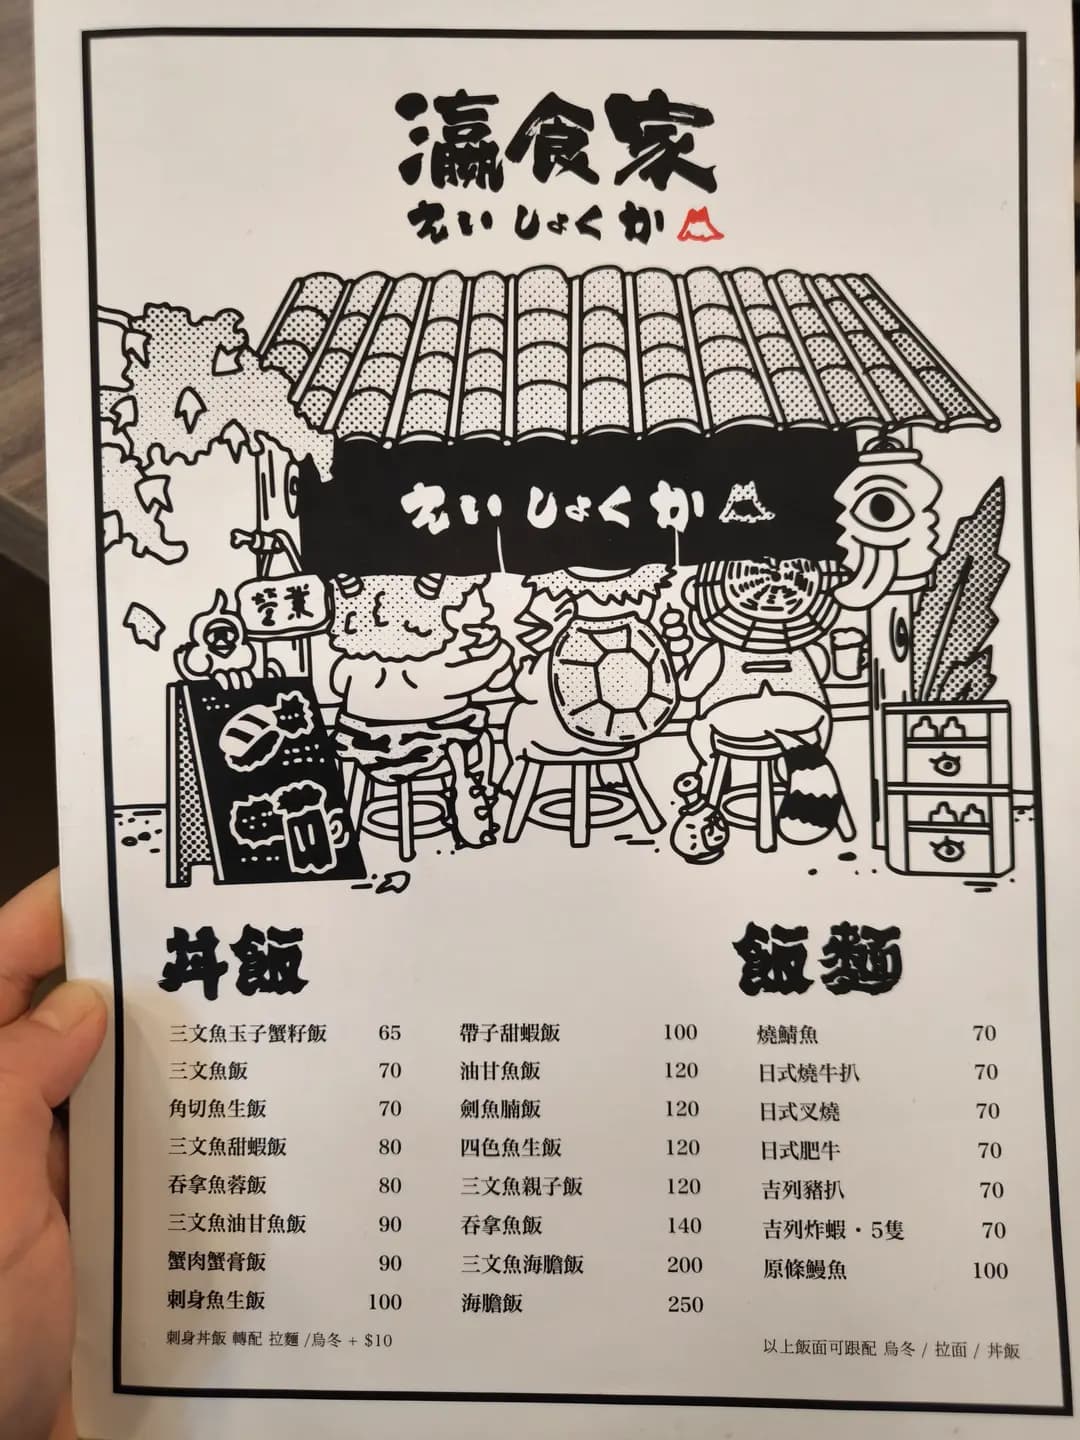 瀛食家
えいしょくか
えいしょくか
營業
丼飯
三文魚玉子蟹籽飯 65
三文魚飯 70
角切魚生飯 70
三文魚甜蝦飯 80
吞拿魚蓉飯 80
三文魚油甘魚飯 90
蟹肉蟹膏飯 90
刺身魚生飯 100
刺身丼飯 轉配 拉麵 /烏冬 + $10
帶子甜蝦飯 100
油甘魚飯 120
劍魚腩飯 120
四色魚生飯 120
三文魚親子飯 120
吞拿魚飯 140
三文魚海膽飯 200
海膽飯 250
飯麵
燒鯖魚 70
日式燒牛扒 70
日式叉燒 70
日式肥牛 70
吉列豬扒 70
吉列炸蝦・5隻 70
原條鰻魚 100
以上飯面可跟配 烏冬 / 拉面 / 丼飯